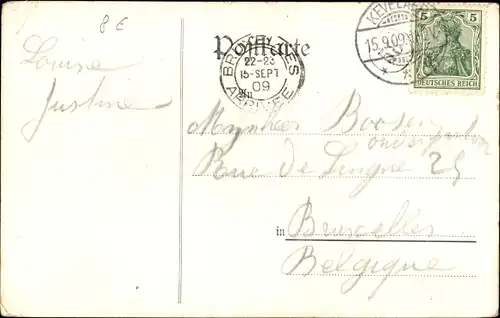 8 €
Louise
Justine
Postkarte
BRUXELLES
22-23
15-SEPT
09
ARRIVEE
15.9.09
5 5
DEUTSCHES REICH
An
Mynheer
Rue de Ligne 25
in Bruxelles
Belgique